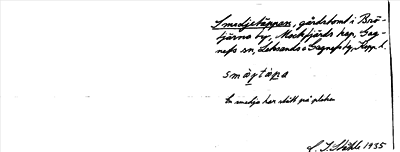 Smedjetäppan, gårdstomt i Brö-
tjärna by, Mockfjärds kap, Gag-
nefs sn, Leksands o Gagnefs tg, Kopp. l.
smäytäpa
En smedja har stått på platsen
L. G. Ståhle 1935